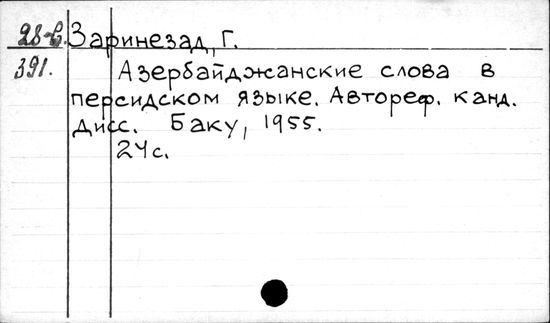 28-6. Заринезад, Г.
391. Азербайджанские слова в
персидском языке. Автореф. канд.
дисс. Баку, 1955.
24с.